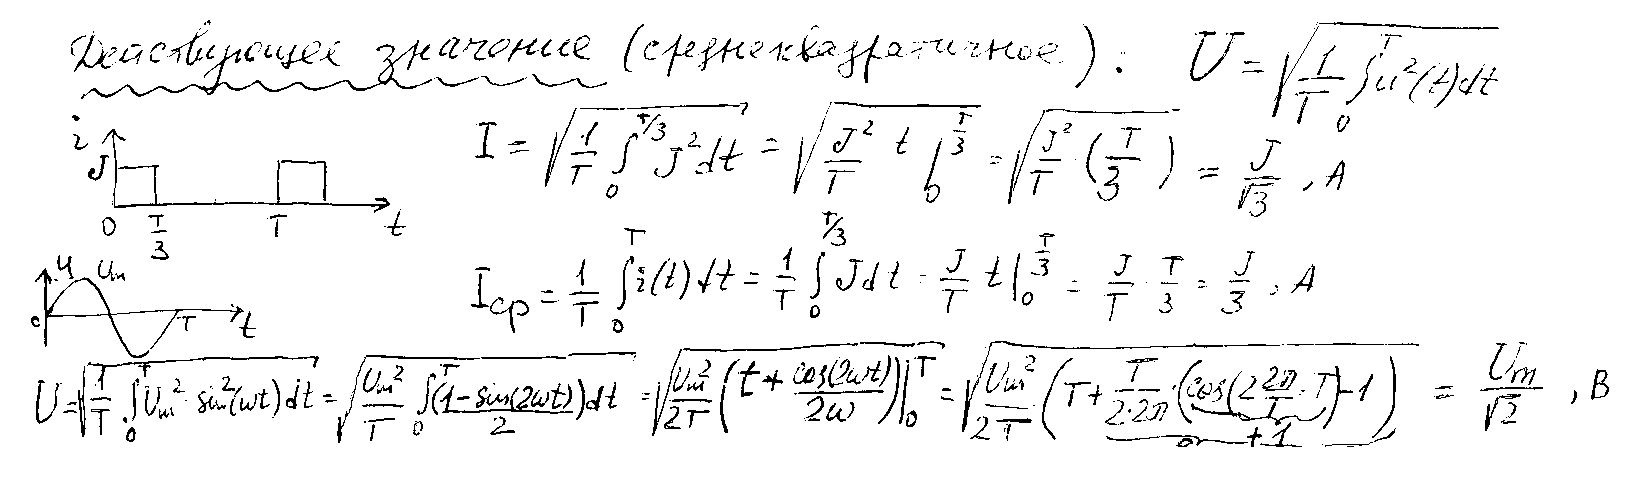 Действующее значение (среднеквадратичное): U = √(1/T ∫₀ᵀ u²(t)dt)
i
J
0 T/3 T t
I = √(1/T ∫₀^(T/3) J²dt) = √(J²/T t|₀^(T/3)) = √(J²/T · (T/3)) = J/√3, А
I_ср = 1/T ∫₀ᵀ i(t)dt = 1/T ∫₀^(T/3) Jdt = J/T t|₀^(T/3) = J/T · T/3 = J/3, А
u Um
0 T t
U = √(1/T ∫₀ᵀ Um² · sin²(ωt)dt) = √(Um²/T ∫₀ᵀ (1-sin(2ωt))/2 dt) = √(Um²/2T (t + cos(2ωt)/2ω)|₀ᵀ) = √(Um²/2T (T + T/(2·2π) · (cos(2 2π/T · T) - 1))) = Um/√2, В
+1